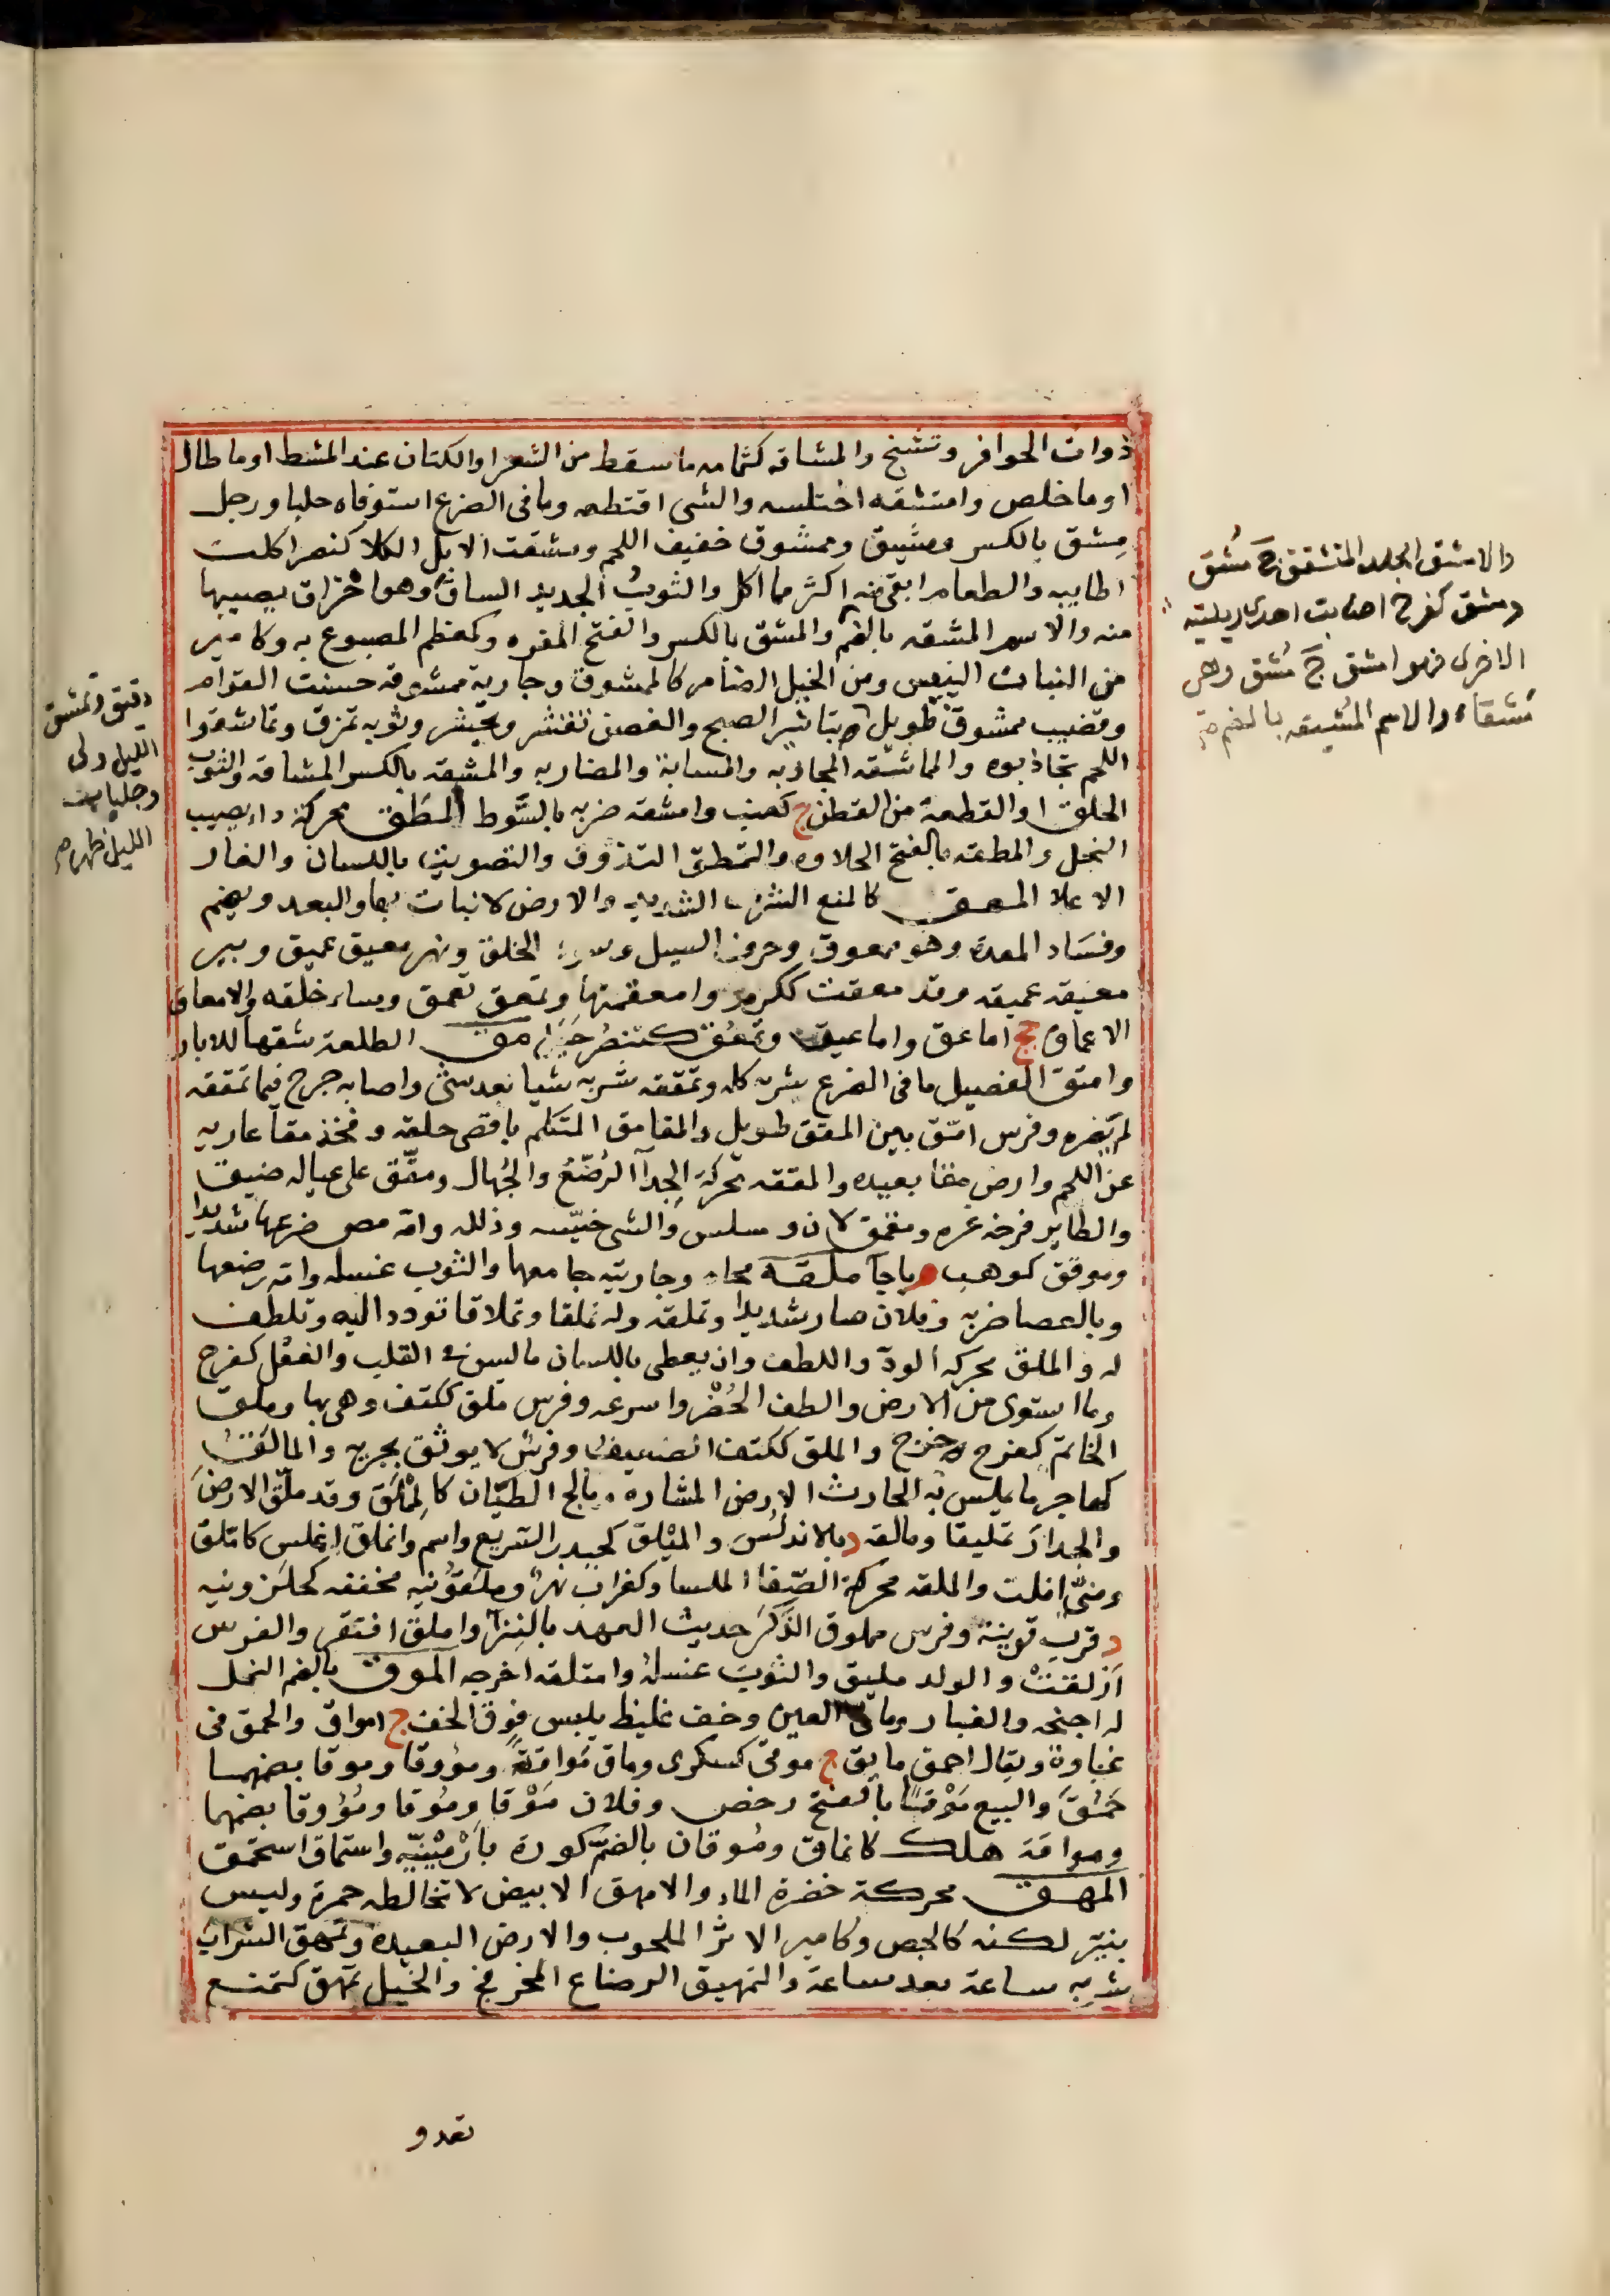 ذوات الحوافر وتشنج والمشاقه كثمامه ما سقط من الشعر او الكتان عند المشط او ما طال
او ما خلص وامتشقه اختلسه والشى اقتطعه وما فى الضرع استوفاه حلبا ورجل
مِشق بالكسر ومشيق وممشوق خفيف اللحم ومشقت الابل الكلا كنصر اكلت
اطايبه والطعام ابقى منه اكثر مما اكل والثوب الجديد الساق وهو احْتراق يصيبها
منه والاسم المشقه بالضم والمشق بالكسر والفتح المغره وكمعظم المصبوغ به وكامير
من الثياب اللبيس ومن الخيل الضامر كالممشوق وجارية ممشوقه حسنت القوام
وقضيب ممشوق طويل تباشير الصبح والغصن تقشر وثوبه تمزق وتماشقوا
اللحم تجاذبوه والمماشقه المجاذبه والمسابة والمضاربه والمشقه بالكسر المشاقه والثوب
الخلق او القطعة من القطن ج كعنب وامشقه ضربه بالسَّوط المطق محركة داء يصيب
النخل والمطقه بالفتح الحلاوه والتمطق التذوق والتصويت باللسان والغار
الاعلا المعق كالمنع الشرب الشديد والارض لا نبات بها والبعد ويضم
وفسَاد المعدة وهو ممعوق وجرف السيل وسوء الخلق ونهر معيق عميق وبير
معيقه عميقه وقد معقت ككرم وامعقتها وتمعق تعمق وساء خلقه والامعاق
الاعماق جج اماعق واماعيق وتَمعُق كتنصُر جبل مق الطلعة شقها للابار
وامتق الفصيل ما فى الضرع شربه كله وتمققه شربه شيا بعد شئ واصابه جرح فما تمققه
لم يَضره وفرس امق بين المقق طويل والمقامق المتكلم باقصى حلقه وفخذ مقا عاريه
عن اللحم وارض مقا بعيده والمققه محركة الجِدآ الرُضَّعُ والجُهال ومقّق على عياله ضيق
والطاير فرخه غره ومقمق لان وسلس والشى خيّسه وذلله وامه مص ضرعها شديدا
وموقق كوهب ة باجآ ملقه محاه وجاريته جامعها والثوب غسله وامه رضعها
وبالعصا ضربه وفلان صار شديدا وتملقه وله تملقا وتملاقا تودد اليه وتلطف
له والملق محركه الودّ واللطف وان يعطى باللسان ما ليس فى القلب والفعل كفرح
وما استوى من الارض والطف الحُضْر واسرعه وفرس ملق ككتف وهى بها وملق
الخاتم كفرح وخرج والملق ككتف الضعيف وفرس لا يوثق بجريه والمالَق
كهاجر ما يملس به الحارث الارض المثاره ومالج الطيّان كالمِمْلَق وقد ملّق الارضَ
والجدارَ تمليقا ومالقه د بالاندلُس والمَيْلق كحيدر السَّريع واسم وانملق انملس كامّلق
ومنّى افلت والملقه محركة الصّفا الملسا وكغراب نهر ومَلقُونيه مخففه كحلزونيه
د قرب قونية وفرس مملوق الذَّكَر حديث العهد بالنِزا واملق افتقر والفرس
ازلقت والولد مليق والثوبَ غسله وامتلقه اخرجه الموق بالضم النمل
له اجنحه والغبار وماق العين وخف غليظ يلبس فوق الخف ج امواق والحمق فى
غباوة ويقال احمق مايق ج موقى كسكرى وماق مَواقَةً ومؤوقا وموقا بضمهما
حَمُقَ والبيع مَوْقا بالفتح رخص وفلان مَوْقا ومُوقا ومُؤوقا بضمهما
ومواقه هلك كانماق ومُوقان بالضمّ كورة بارْمِينيّه واستماق استحمق
المهق محركة خضرة الماء والامهق الابيض لا تخالطه حمرة وليس
بنيّر لكنه كالجص وكامير الاثر الملحوب والارض البعيده وتمهق الشراب
شربه ساعة بعد ساعة والتمهيق الرضاع المخرفج والخيل تمهق كتمنع
تعدو
والامشق الجلد المتشقق ج مُشق
ومشق كفرح اصابت احدى ربلتيه
الاخرى فهو امشق ج مُشق وهى
مَشقاء والاسم المُشقه بالضم صح
دقيق وتمشق
الليل ولى
وجلباب
الليل ظهر صح